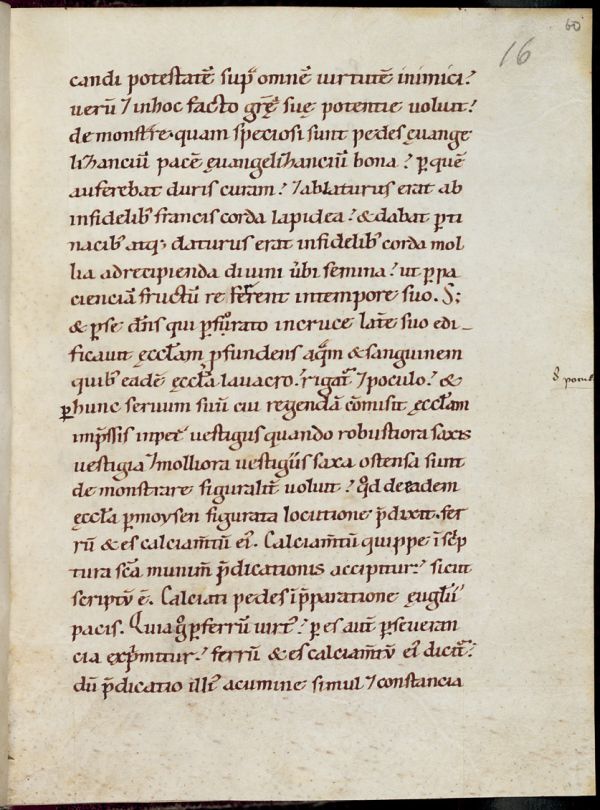 60
16
candi potestatē sup̄ omnē uirtutē inimici?
uerū ⁊ inhoc facto gr̄ę suę potentie uoluit?
de monstrare. quam speciosi sunt pedes ęuange
lizanciū pacē ęuangelizanciū bona? ꝑ quē
auferebat duris curam? ⁊ ablaturus erat ab
infidelib; francis corda lapidea? & dabat ꝑti
nacib; atq; daturus erat infidelib; corda mol
lia adrecipienda diuini ūbi semina? ut ꝑ pa
cienciā fructū re ferrent intempore suo. S;
& ꝑse dn̄s qui ꝑfosrato incruce latere suo edi_
ficauit ęccłam ꝓfundens aquā & sanguinem
quib; eadē ęccła lauacro? rigatur ⁊ poculo? &
ꝑ hunc seruum suū cui regendā cōmisit ęccłam
imp̄ssis inpetra uestigiis quando robustiora saxis
uestigia ⁊ molliora uestigiis saxa ostensa sunt
de monstrare figuralit̄ uoluit? qd̄ deeadem
ęccła ꝑ moysen figurata locutione p̄dixit. fer
rū & es calciam̄tū ei᷒. Calciam̄tū quippe ī sc̄p
tura sc̄a munim̄ p̄dicationis accipitur? sicut
scriptū ē. Calciati pedes ī p̄paratione ęuglīi
pacis. Quia g̊ ꝑ ferrū uirt᷒? ꝑ es aut̄ ꝑseueran
cia exp̄mitur? ferrū & es calciam̄tū ei᷒ dicit᷑?
dū p̄dicatio illi᷒ acumine simul ⁊ constancia